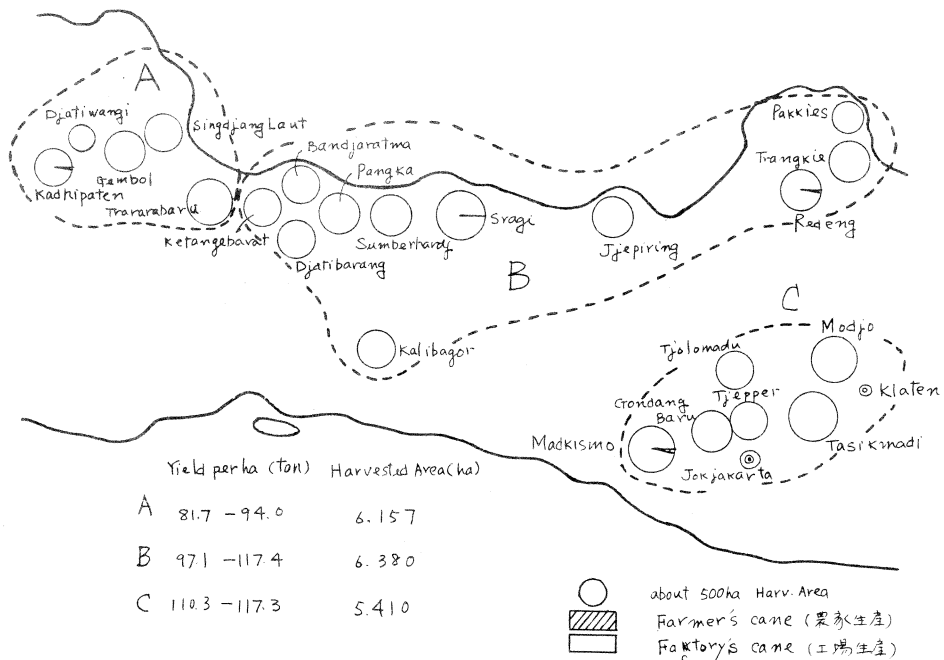 A
Djatiwangi
Singdjang Laut
Gembol
Kadhipaten
Trararabaru
Bandjaratma
Pangka
Ketangebarat
Djatibarang
Sumberhardj
Sragi
Jjepiring
Pakkies
Trangkie
Redeng
B
Kalibagor
C
Modjo
Tjolomadu
Klaten
Tjepper
Gondang
Baru
Madkismo
Tasikmadi
Jokjakarta
Yield per ha (ton) Harvested Area (ha)
A 81.7 - 94.0 6.157
B 97.1 - 117.4 6.380
C 110.3 - 117.3 5.410
about 500ha Harv. Area
Farmer's cane (農家生産)
Factory's cane (工場生産)